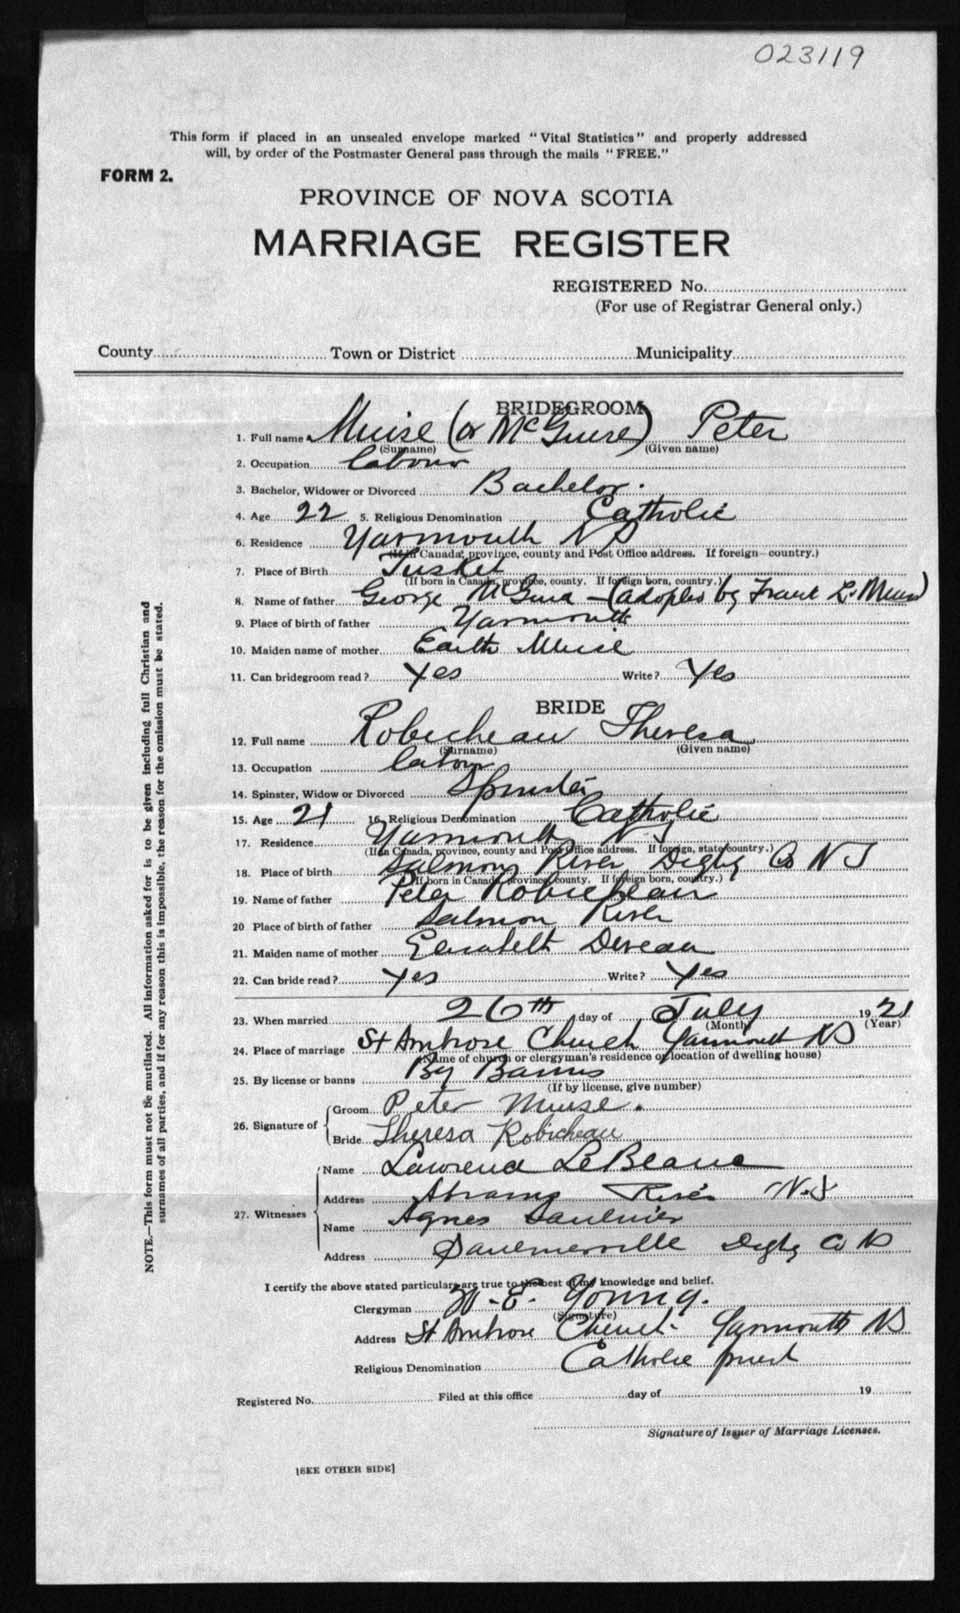 023119
This form if placed in an unsealed envelope marked "Vital Statistics" and properly addressed
will, by order of the Postmaster General pass through the mails "FREE."
FORM 2.
PROVINCE OF NOVA SCOTIA
MARRIAGE REGISTER
REGISTERED No.
(For use of Registrar General only.)
County Town or District Municipality
BRIDEGROOM
1. Full name Muise (or McGuire) Peter
(Surname) (Given name)
2. Occupation labour
3. Bachelor, Widower or Divorced Bachelor.
4. Age 22 5. Religious Denomination Catholic
6. Residence Yarmouth N S
(If in Canada, province, county and Post Office address. If foreign—country.)
7. Place of Birth Tusket
(If born in Canada, province, county. If foreign born, country.)
8. Name of father George McGuire - (adopted by Frank L. Muise)
9. Place of birth of father Yarmouth
10. Maiden name of mother Muise
11. Can bridegroom read? Yes Write? Yes
BRIDE
12. Full name Robicheau Theresa
(Surname) (Given name)
13. Occupation labour
14. Spinster, Widow or Divorced Spinster
15. Age 21 16. Religious Denomination Catholic
17. Residence Yarmouth N.S
(If in Canada, province, county and Post Office address. If foreign, state country.)
18. Place of birth Salmon River Digby Co N S
(If born in Canada, province, county. If foreign born, country.)
19. Name of father Peter Robicheau
20 Place of birth of father Salmon River
21. Maiden name of mother Elisabeth Deveau
22. Can bride read? Yes Write? Yes
23. When married 26th day of July 1921
(Month) (Year)
24. Place of marriage St Ambrose Church Yarmouth NS
(Name of church or clergyman's residence or location of dwelling house)
25. By license or banns By Banns
(If by license, give number)
26. Signature of Groom Peter Muise.
Bride Theresa Robicheau
27. Witnesses Name LeBlanc
Address Abrams River N.S
Name Agnes Saulnier
Address Saulnierville Digby Co NS
I certify the above stated particulars are true to the best of my knowledge and belief.
Clergyman W. E. Young.
(Signature)
Address St Ambrose Church. Yarmouth NS
Religious Denomination Catholic priest
Registered No. Filed at this office day of 19
Signature of Issuer of Marriage Licenses.
[SEE OTHER SIDE]
NOTE.—This form must not be mutilated. All information asked for is to be given including full Christian and
surnames of all parties, and if for any reason this is impossible, the reason for the omission must be stated.